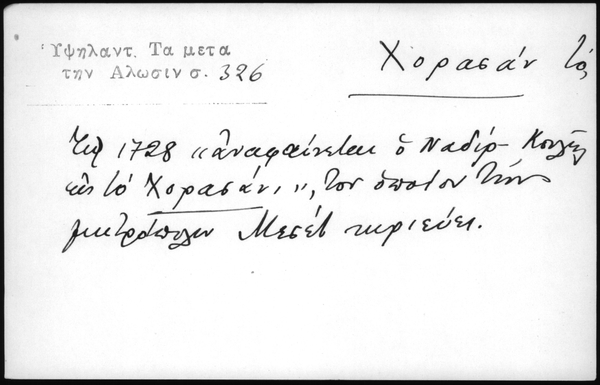 Ὑψηλαντ. Τα μετα
την Αλωσιν σ. 326
Χορασάν τό
Τῷ 1728 "ἀναφαίνεται ὁ Ναδίρ-Κουλῆς
εἰς τό Χορασάν,", τοῦ ὁποίου τήν
μητρόπολιν Μεσέτ κυριεύει.